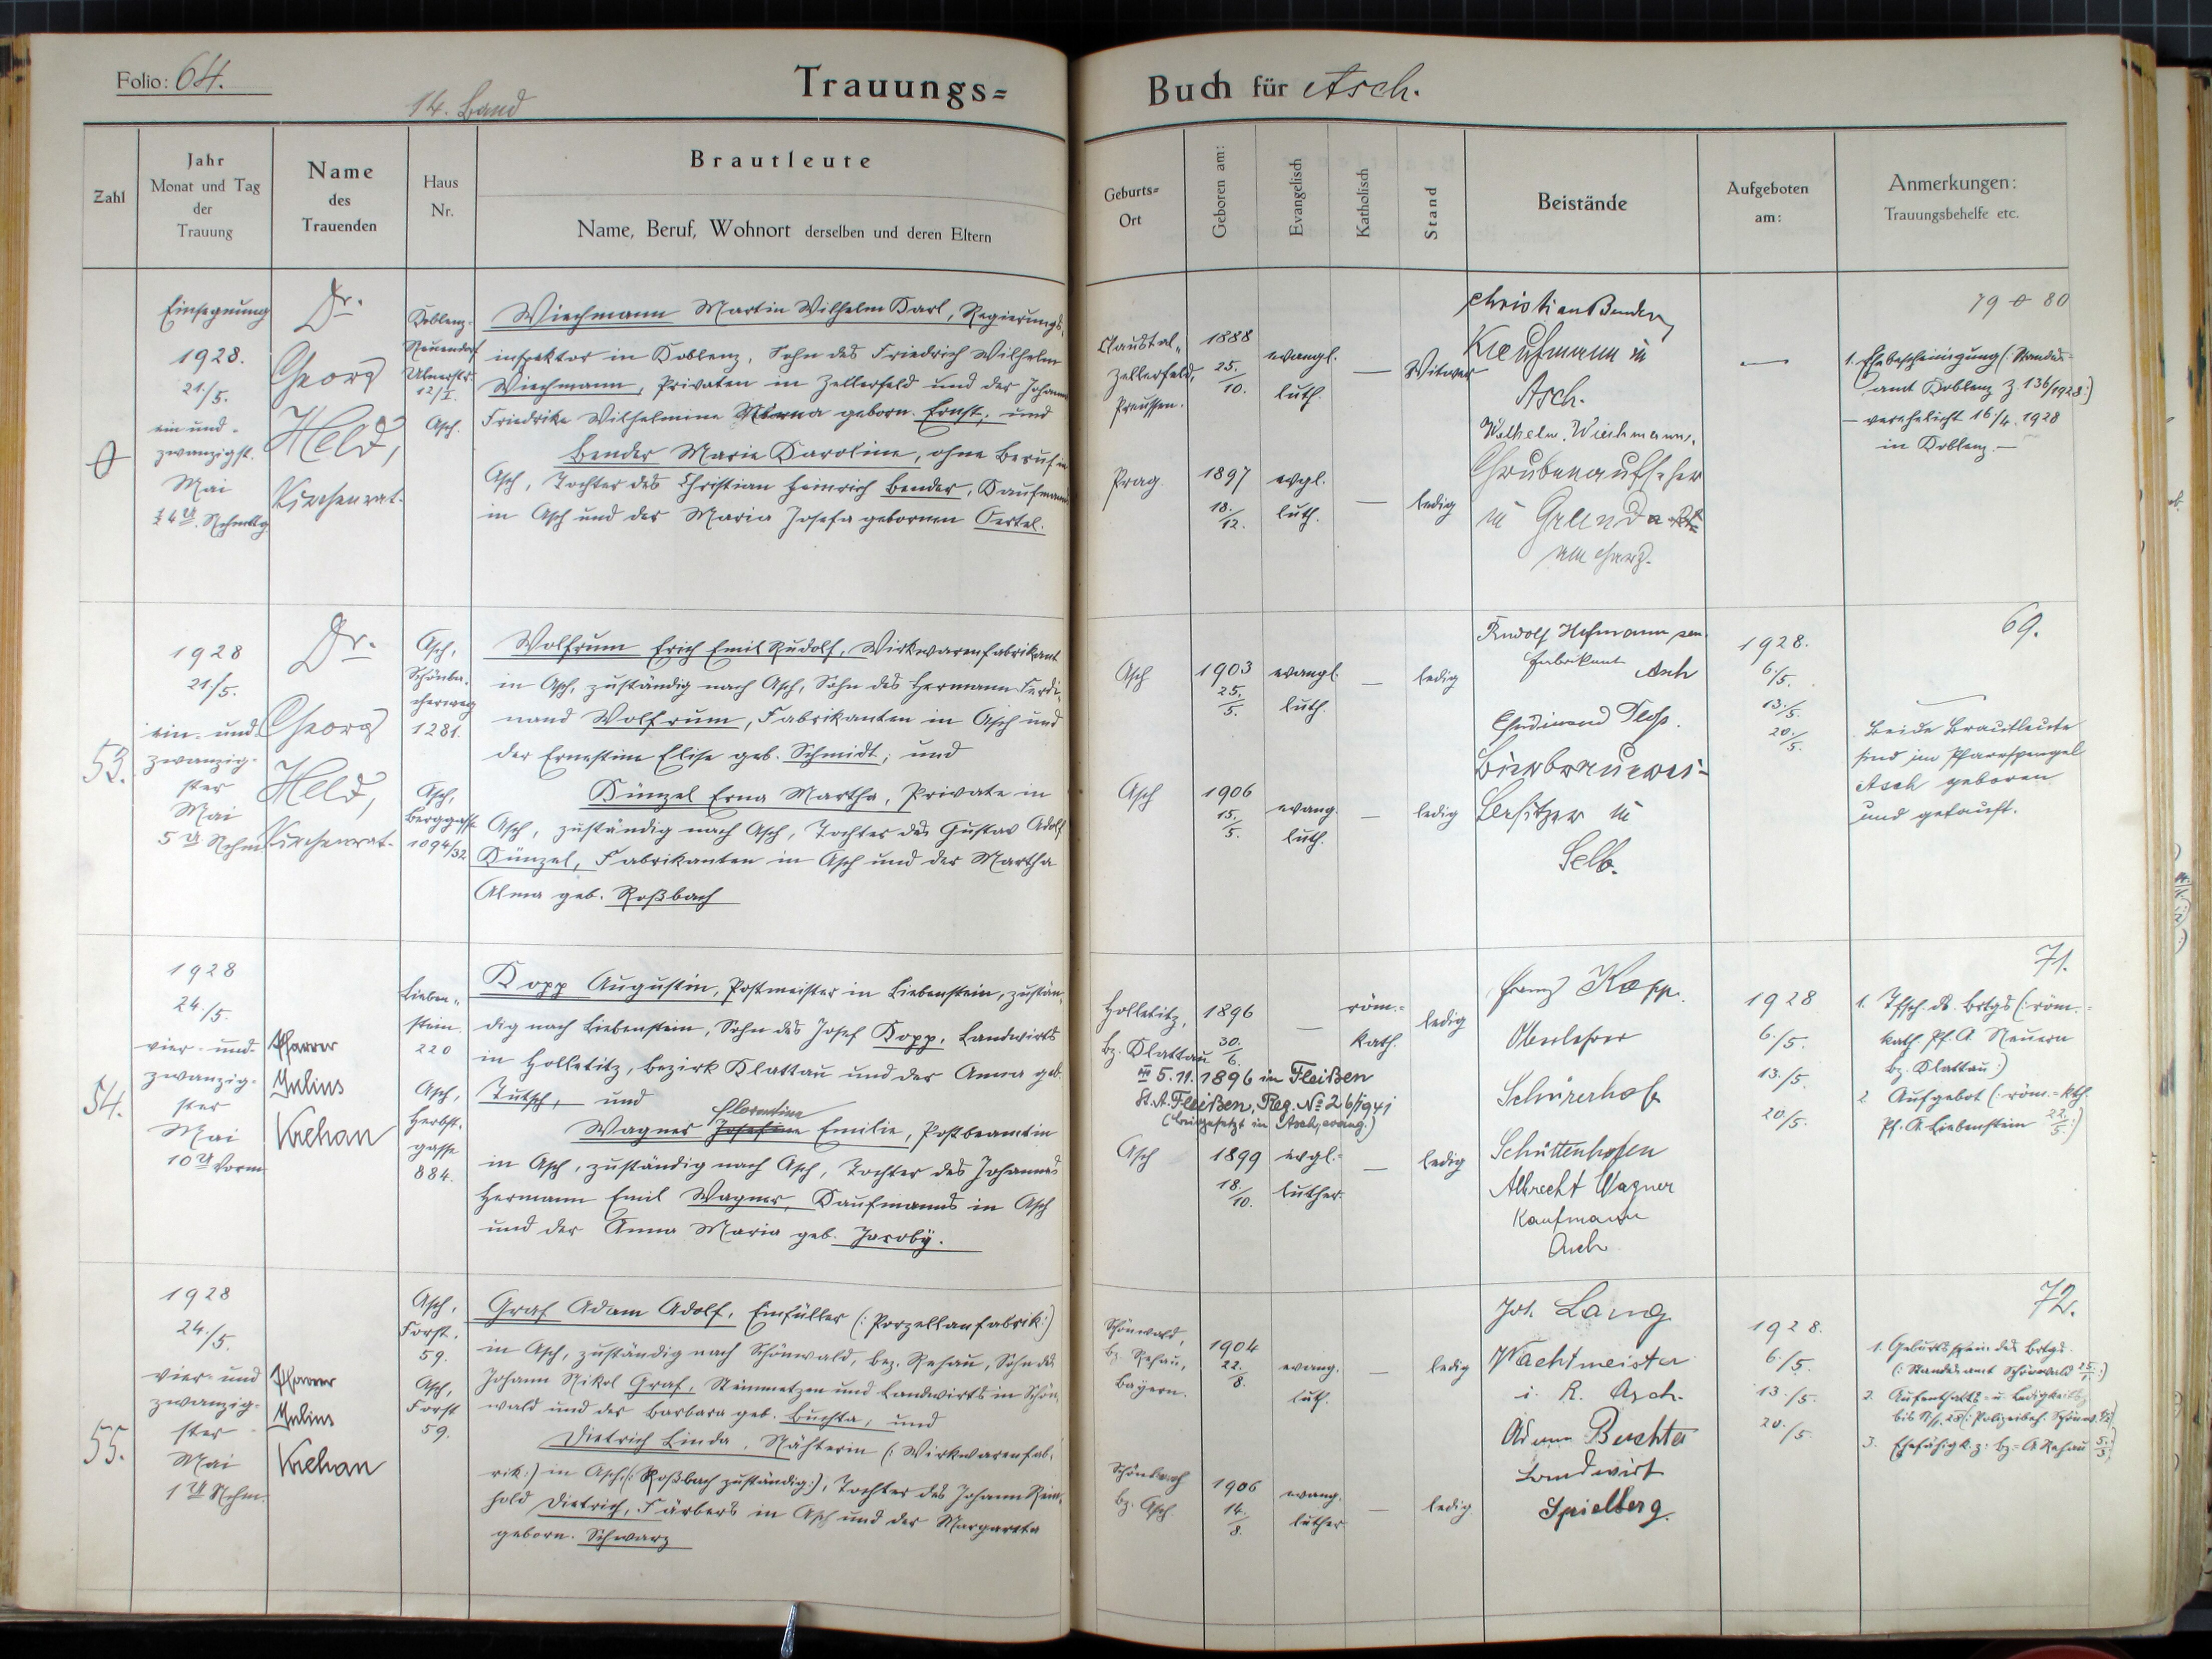 Folio: 64.
14. Band
Trauungs=
Buch für Asch.
Zahl
Jahr
Monat und Tag
der
Trauung
Name
des
Trauenden
Haus
Nr.
Brautleute
Name, Beruf, Wohnort derselben und deren Eltern
Geburts=
Ort
Geboren am:
Evangelisch
Katholisch
Stand
Beistände
Aufgeboten
am:
Anmerkungen:
Trauungsbehelfe etc.
Einsegnung
1928.
21./5.
ein und-
zwanzigst.
Mai
Dr.
Georg
Held,
Kirchenrat.
Koblenz-
Neuendorf
12/I.
Asch.
Wiechmann Martin Wilhelm Karl, Regierungs-
inspektor in Koblenz, Sohn des Friedrich Wilhelm
Wiechmann, Privaten in Zellerfeld und der Johanne
Friedrike Wilhelmine geborn. Ernst; und
Bender Marie Karoline, ohne Beruf in
Asch, Tochter des Christian Heinrich Bender, Kaufmanns
in Asch und der Maria Josefa gebornen Oertel.
Claustal-
Zellerfeld,
Preussen.
1888
25./10.
evangl.
luth.
—
Witwer
Prag
1897
18./12.
evgl.
luth.
—
ledig
Christian Bender,
Kaufmann in
Asch.
Wilhelm Wiechmann,
Grubenaufseher
in Grund
am Harz.
—
79 0 80
1. Ehebescheinigung (: Standes-
amt Koblenz Z 136/1928:)
— verehelicht 16./4. 1928
in Koblenz. —
53.
1928
21./5.
ein- und
zwanzig-
ster
Mai
5 U Nchm
Dr.
Georg
Held,
Kirchenrat.
Asch,
Schönba-
cherweg
1281.
Asch,
Berggasse
1094/32
Wolfrum Erich Emil Rudolf, Wirkwarenfabrikant
in Asch, zuständig nach Asch, Sohn des Hermann Ferdi-
nand Wolfrum, Fabrikanten in Asch und
der Ernestine Elise geb. Schmidt; und
Künzel Erna Martha, Private in
Asch, zuständig nach Asch, Tochter des Gustav Adolf
Künzel, Fabrikanten in Asch und der Martha
Alma geb. Roßbach
Asch
1903
25./5.
evangl.
luth.
—
ledig
Asch
1906
15./5.
evang.
luth.
—
ledig
Rudolf Hofmann sen.
Fabrikant Asch
Ferdinand Ploss.
Bierbrauerei-
Besitzer in
Selb.
1928.
6./5.
13./5.
20./5.
69.
Beide Brautleute
sind im Pfarrsprengel
Asch geboren
und getauft.
54.
1928
24./5.
vier- und-
zwanzig-
ster
Mai
10 U Vorm
Pfarrer
Julius
Krehan
Lieben-
stein.
220
Asch,
Herbst-
gasse
884.
Kopp Augustin, Postmeister in Liebenstein, zustän-
dig nach Liebenstein, Sohn des Josef Kopp, Landwirts
in Holletitz, Bezirk Klattau und der Anna geb.
Tutsch, und
Florentine
Wagner Josefine Emilie, Postbeamtin
in Asch, zuständig nach Asch, Tochter des Johannes
Hermann Emil Wagner, Kaufmanns in Asch
und der Anna Maria geb. Jacoby.
Holletitz,
bz. Klattau
1896
30./6.
—
röm.-
kath.
ledig
5.11.1896 in Fleißen
St.A. Fleißen, Reg. No 26/1941
(beigesetzt in Asch, evang.)
Asch
1899
18./10.
evgl.-
luther.
—
ledig
Franz Kopp.
Oberlehrer
Schürerhof
Schüttenhofen
Albrecht Wagner
Kaufmann
Asch
1928
6./5.
13./5.
20./5.
71.
1. Tfsch. ds. Brtgs (: röm.-
kath. Pf. A. Neuern
bz. Klattau:)
2. Aufgebot (: röm.-kth.
Pf. A. Liebenstein 22./5.:)
55.
1928
24./5.
vier- und
zwanzig-
ster
Mai
1 U Nchm.
Pfarrer
Julius
Krehan
Asch,
Forst.
59.
Asch,
Forst
59.
Graf Adam Adolf, Einfüller (: Porzellanfabrik:)
in Asch, zuständig nach Schönwald, bez. Rehau, Sohn des
Johann Nikol Graf, Steinmetzen und Landwirts in Schön-
wald und der Barbara geb. Buchta, und
Dietrich Linda, Nähterin (: Wirkwarenfab-
rik:) in Asch, (: Roßbach zuständig:), Tochter des Johann Rein-
hold Dietrich, Färbers in Asch und der Margareta
geborn. Schwarz
Schönwald,
bz. Rehau,
Bayern.
1904
22./8.
evang.
luth.
—
ledig
Schönbach
bz. Asch
1906
14./8.
evang.
luther
—
ledig.
Joh. Lang
Wachtmeister
i. R. Asch.
Adam Buchta
Landwirt
Spielberg.
1928.
6./5.
13./5.
20./5.
72.
1. Geburtsschein des Brtgs.
(: Standesamt Schönwald
2. Aufenthalts- u. Ledigkeits
3. Ehefähigk. z. bz.-A. Rehau